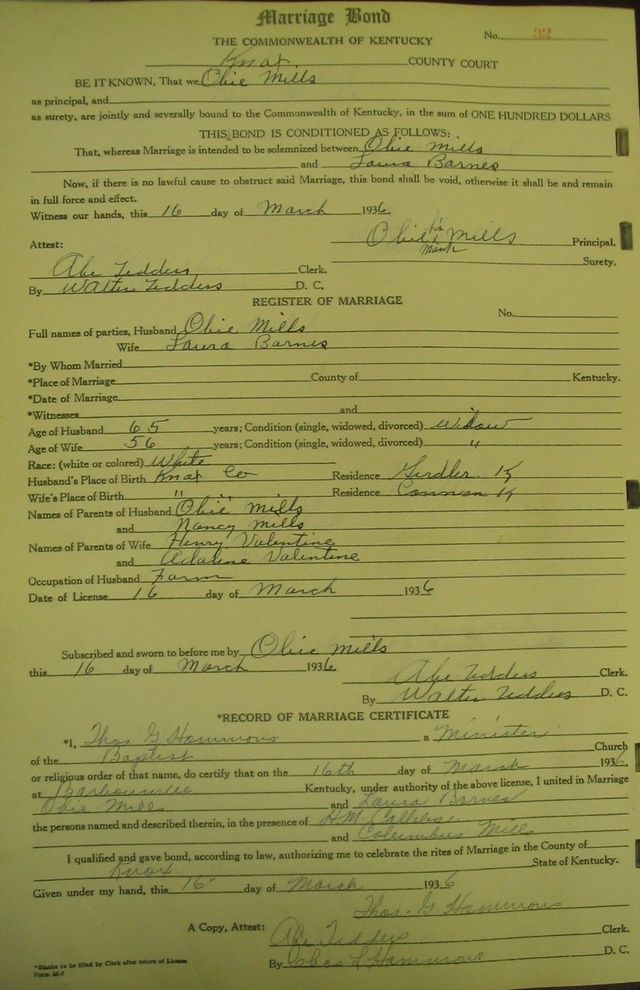 Marriage Bond
No. 32
THE COMMONWEALTH OF KENTUCKY
Knox COUNTY COURT
BE IT KNOWN, That we Obie Mills
as principal, and
as surety, are jointly and severally bound to the Commonwealth of Kentucky, in the sum of ONE HUNDRED DOLLARS
THIS BOND IS CONDITIONED AS FOLLOWS:
That, whereas Marriage is intended to be solemnized between Obie Mills
and Laura Barnes
Now, if there is no lawful cause to obstruct said Marriage, this bond shall be void, otherwise it shall be and remain
in full force and effect.
Witness our hands, this 16 day of March 1936
Obie his x mark Mills Principal.
Attest:
Surety.
Abe Tedders Clerk.
By Walter Tedders D. C.
REGISTER OF MARRIAGE
No.
Full names of parties, Husband Obie Mills
Wife Laura Barnes
*By Whom Married
*Place of Marriage County of Kentucky.
*Date of Marriage
*Witnesses and
Age of Husband 65 years; Condition (single, widowed, divorced) Widow
Age of Wife 56 years; Condition (single, widowed, divorced) "
Race: (white or colored) White
Husband's Place of Birth Knox Co Residence Girdler Ky
Wife's Place of Birth " " Residence Cannon Ky
Names of Parents of Husband Obie Mills
and Nancy Mills
Names of Parents of Wife Henry Valentine
and Valentine
Occupation of Husband Farm
Date of License 16 day of March 1936
Subscribed and sworn to before me by Obie Mills
this 16 day of March 1936
Abe Tedders Clerk.
By Walter Tedders D. C.
*RECORD OF MARRIAGE CERTIFICATE
*I, Thos G. Hammons a Minister
of the Baptist Church
or religious order of that name, do certify that on the 16th day of March 1936,
at Barbourville Kentucky, under authority of the above license, I united in Marriage
Obie Mills and Laura Barnes
the persons named and described therein, in the presence of H.M.
and Columbus Mills
I qualified and gave bond, according to law, authorizing me to celebrate the rites of Marriage in the County of
Knox State of Kentucky.
Given under my hand, this 16" day of March 1936
Thos. G. Hammons
A Copy, Attest:
Abe Tedders Clerk.
By Chas L Hammons D. C.
*Blanks to be filled by Clerk after return of License
Form M-7